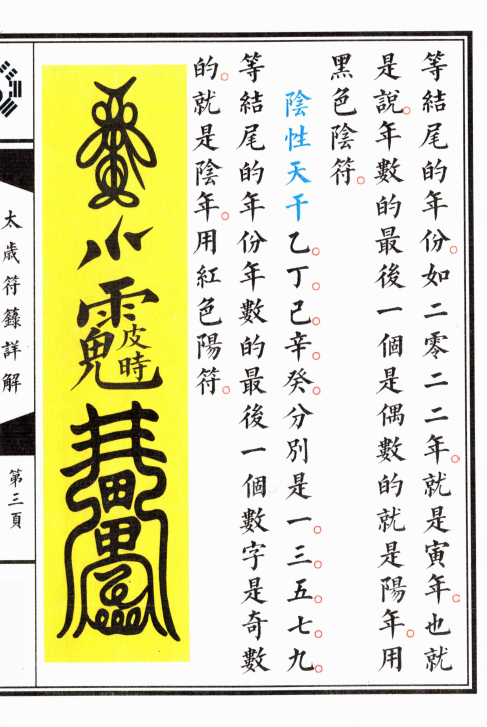 等結尾的年份。如二零二二年。就是寅年。也就
是說。年數的最後一個是偶數的就是陽年。用
黑色陰符。
陰性天干乙。丁。己。辛。癸。分別是一。三。五。七。九。
等結尾的年份年數的最後一個數字是奇數
的。就是陰年。用紅色陽符。
太歲符籙詳解
第三頁